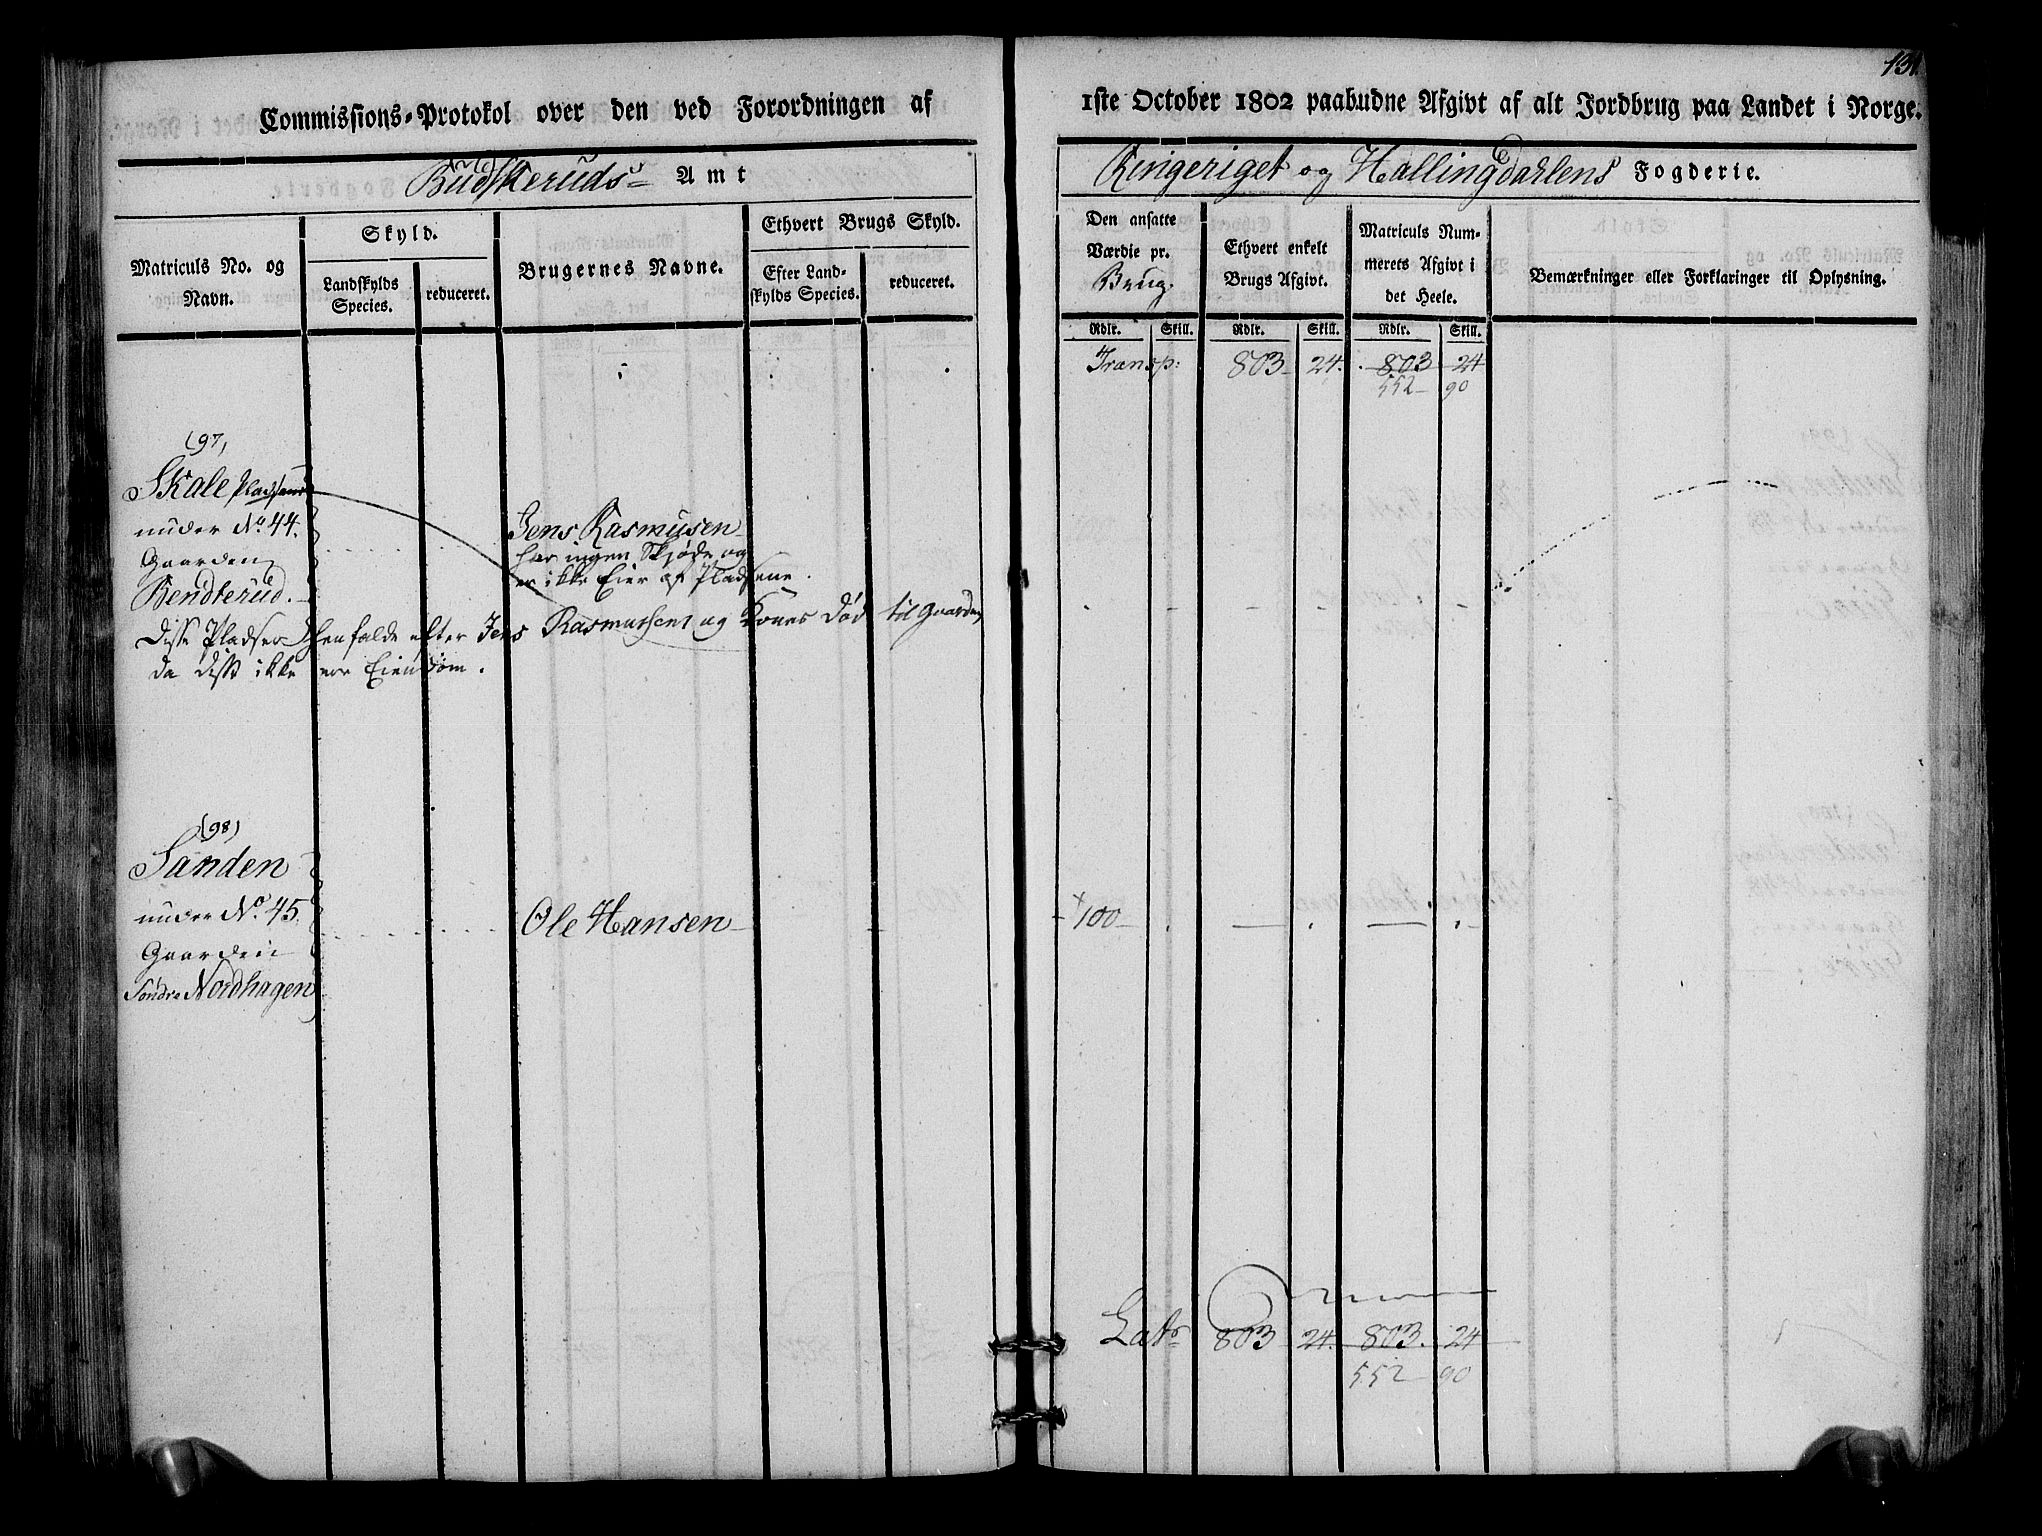 131
Commissions-Protokol over den ved Forordningen af 1ste October 1802 paabudne Afgivt af alt Jordbrug paa Landet i Norge.
Budskeruds Amt
Ringeriget og Hallingdahlens Fogderie.
Matriculs No. og Navn.
Skyld.
Landskylds Species.
reduceret.
Brugernes Navne.
Ethvert Brugs Skyld.
Efter Landskylds Species.
reduceret.
Den ansatte Værdie pr. Brug.
Rdlr. Skill.
Ethvert enkelt Brugs Afgivt.
Rdlr. Skill.
Matriculs Nummerets Afgivt i det Heele.
Rdlr. Skill.
Bemærkninger eller Forklaringer til Oplysning.
Transp: 803 24. 803 24
552 90
(97)
Skale Pladsene
under No. 44.
Gaarden
Bendterud.
Jens Rasmusen
har ingen Skjøde og
er ikke Eier af Pladsene.
Disse Pladser henfalde efter Jens Rasmussens og Kones Død til Gaarden
da disse ikke ere Eiendom.
(98)
Sanden
under No. 45.
Gaarden
Søndre Nordhagen
Ole Hansen
100
Latr 803 24. 803. 24
552 90